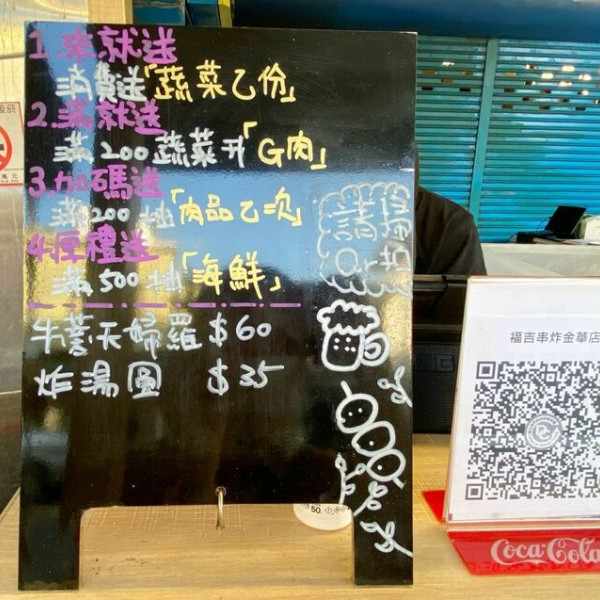 1.來就送
消費送「蔬菜乙份」
2.滿就送
滿200蔬菜升「G肉」
3.加碼送
滿200抽「肉品乙次」
4.厚禮送
滿500抽「海鮮」
牛蒡天婦羅 $60
炸湯圓 $35
福吉串炸金華店
Coca-Cola